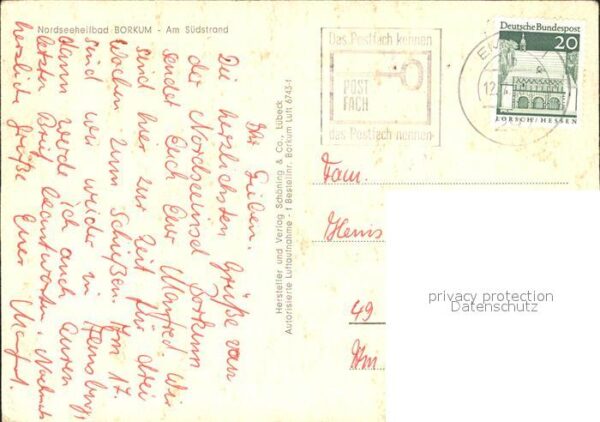 Nordseeheilbad BORKUM - Am Südstrand
Ihr Lieben.
Die herzlichsten Grüße von
der Nordseeinsel Borkum
sendet Euch Euer Manfred. Wir
sind hier zur Zeit für drei
Wochen zum Schießen. Am 17.
sind wir wieder in
dann werde ich auch Euren
letzten Brief beantworten. Nochmals
herzliche Grüße Euer Manfred.
Hersteller und Verlag Schöning & Co., Lübeck
Autorisierte Luftaufnahme - 1 Bestellnr. Borkum Luft 6743-1
Das Postfach kennen
POST
FACH
das Postfach nennen
12.
Deutsche Bundespost
20
LORSCH/HESSEN
Fam.
49
privacy protection
Datenschutz